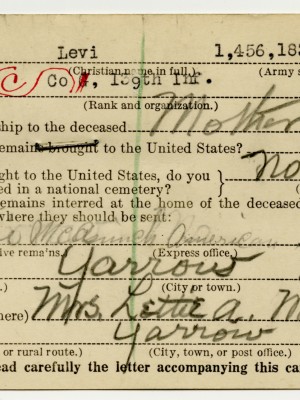 Levi 1,456,183
(Christian name in full.) (Army s
Co , 139th Inf.
(Rank and organization.)
ship to the deceased Mother
remains brought to the United States?
ght to the United States, do you } No
ed in a national cemetery?
remains interred at the home of the deceased
where they should be sent:
American
ive remains.) (Express office.)
Yarrow
(City or town.)
here) Mrs. a. M
Yarrow
or rural route.) (City, town, or post office.)
ead carefully the letter accompanying this ca